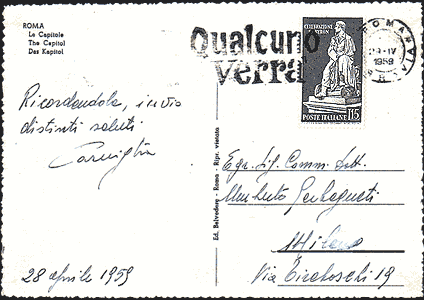 ROMA
Le Capitole
The Capitol
Das Kapitol
Qualcuno
verrà
ROMA
29-IV
1959
POSTE ITALIANE L15
Ricordandola, invio
distinti saluti
Ed. Belvedere - Roma - Ripr. vietata
Egr. Sig. Comm. Dott.
Umberto
Milano
Via 19
28 aprile 1959